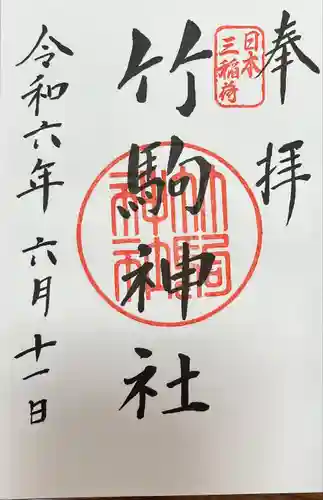 奉拝
日本
三稲荷
竹駒神社
竹駒神社
令和六年六月十一日